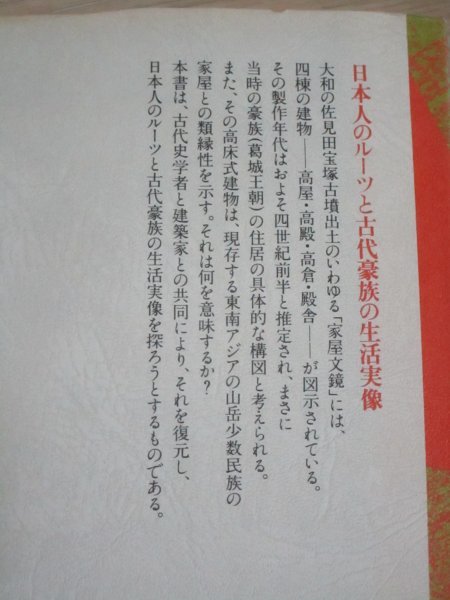 日本人のルーツと古代豪族の生活実像
大和の佐見田宝塚古墳出土のいわゆる「家屋文鏡」には、
四棟の建物——高屋・高殿・高倉・殿舎——が図示されている。
その製作年代はおよそ四世紀前半と推定され、まさに
当時の豪族(葛城王朝)の住居の具体的な構図と考えられる。
また、その高床式建物は、現存する東南アジアの山岳少数民族の
家屋との類縁性を示す。それは何を意味するか?
本書は、古代史学者と建築家との共同により、それを復元し、
日本人のルーツと古代豪族の生活実像を探ろうとするものである。